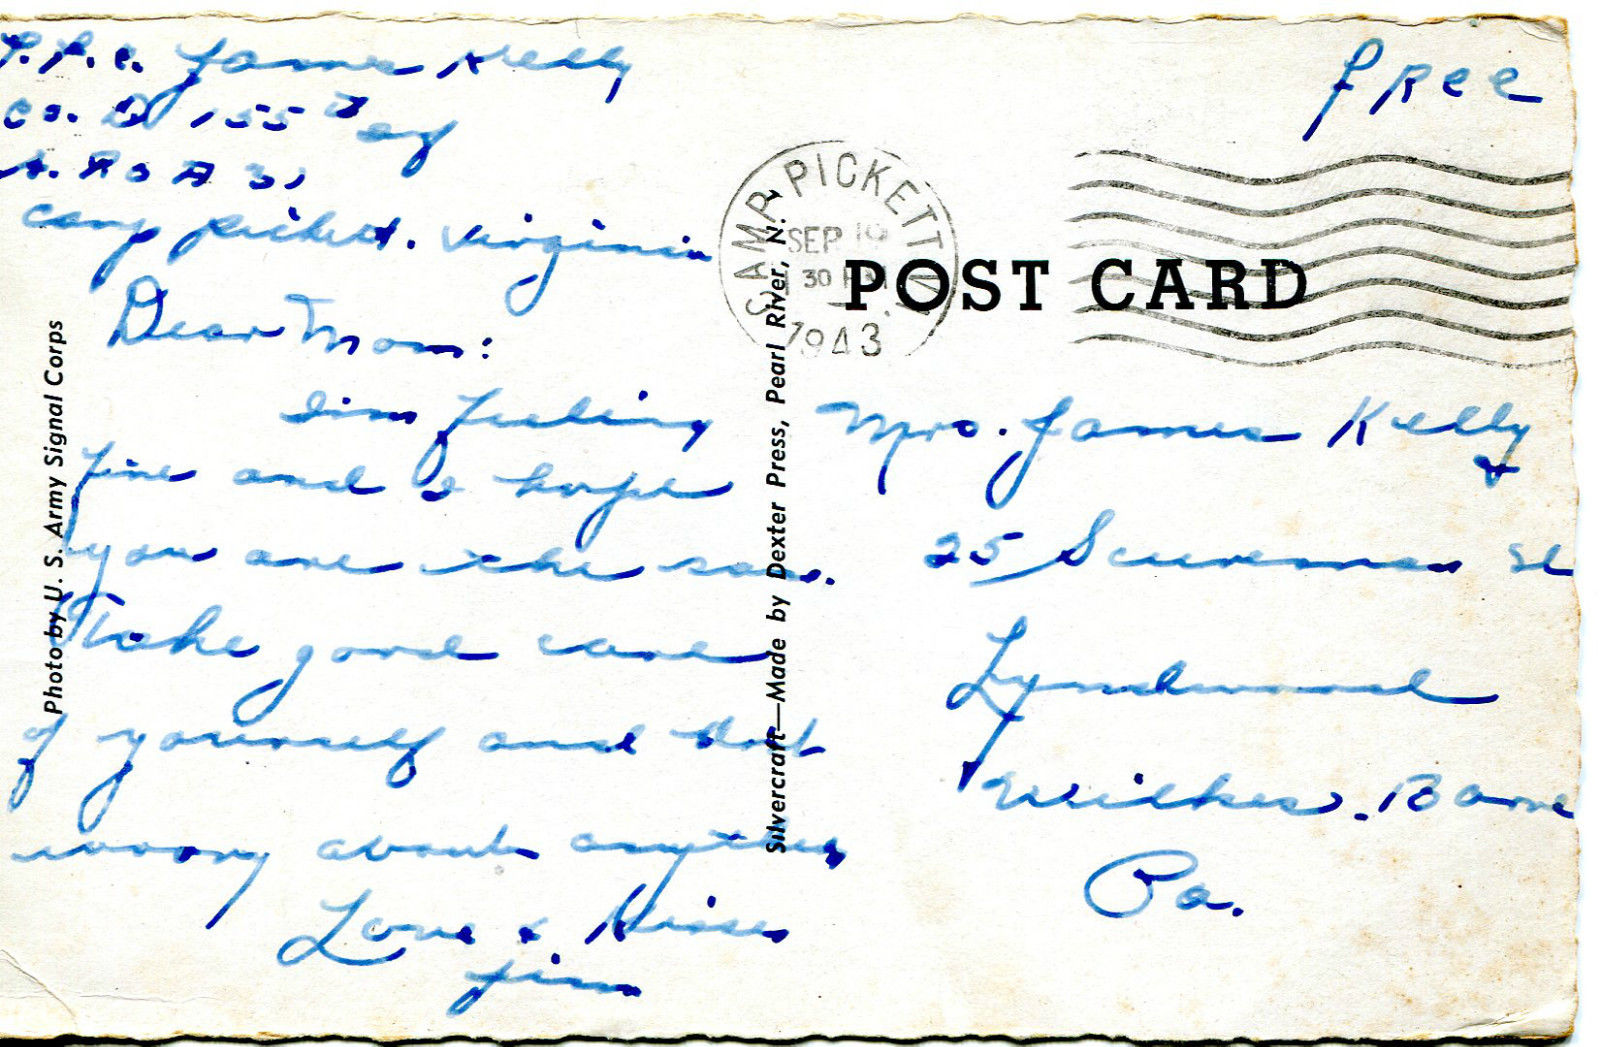 P.F.C. James Kelly
Co. D 155th
Camp Pickett. Virginia
Dear Mom:
I'm feeling
fine and I hope
you are the same.
Take good care
of yourself and dont
worry about anything
Love & Kisses
Jim
Photo by U. S. Army Signal Corps
Silvercraft—Made by Dexter Press, Pearl River, N. Y.
Free
CAMP PICKETT
SEP 10
30 PM
1943
POST CARD
Mrs. James Kelly
25 St
Lyndwood
Wilkes. Barre
Pa.